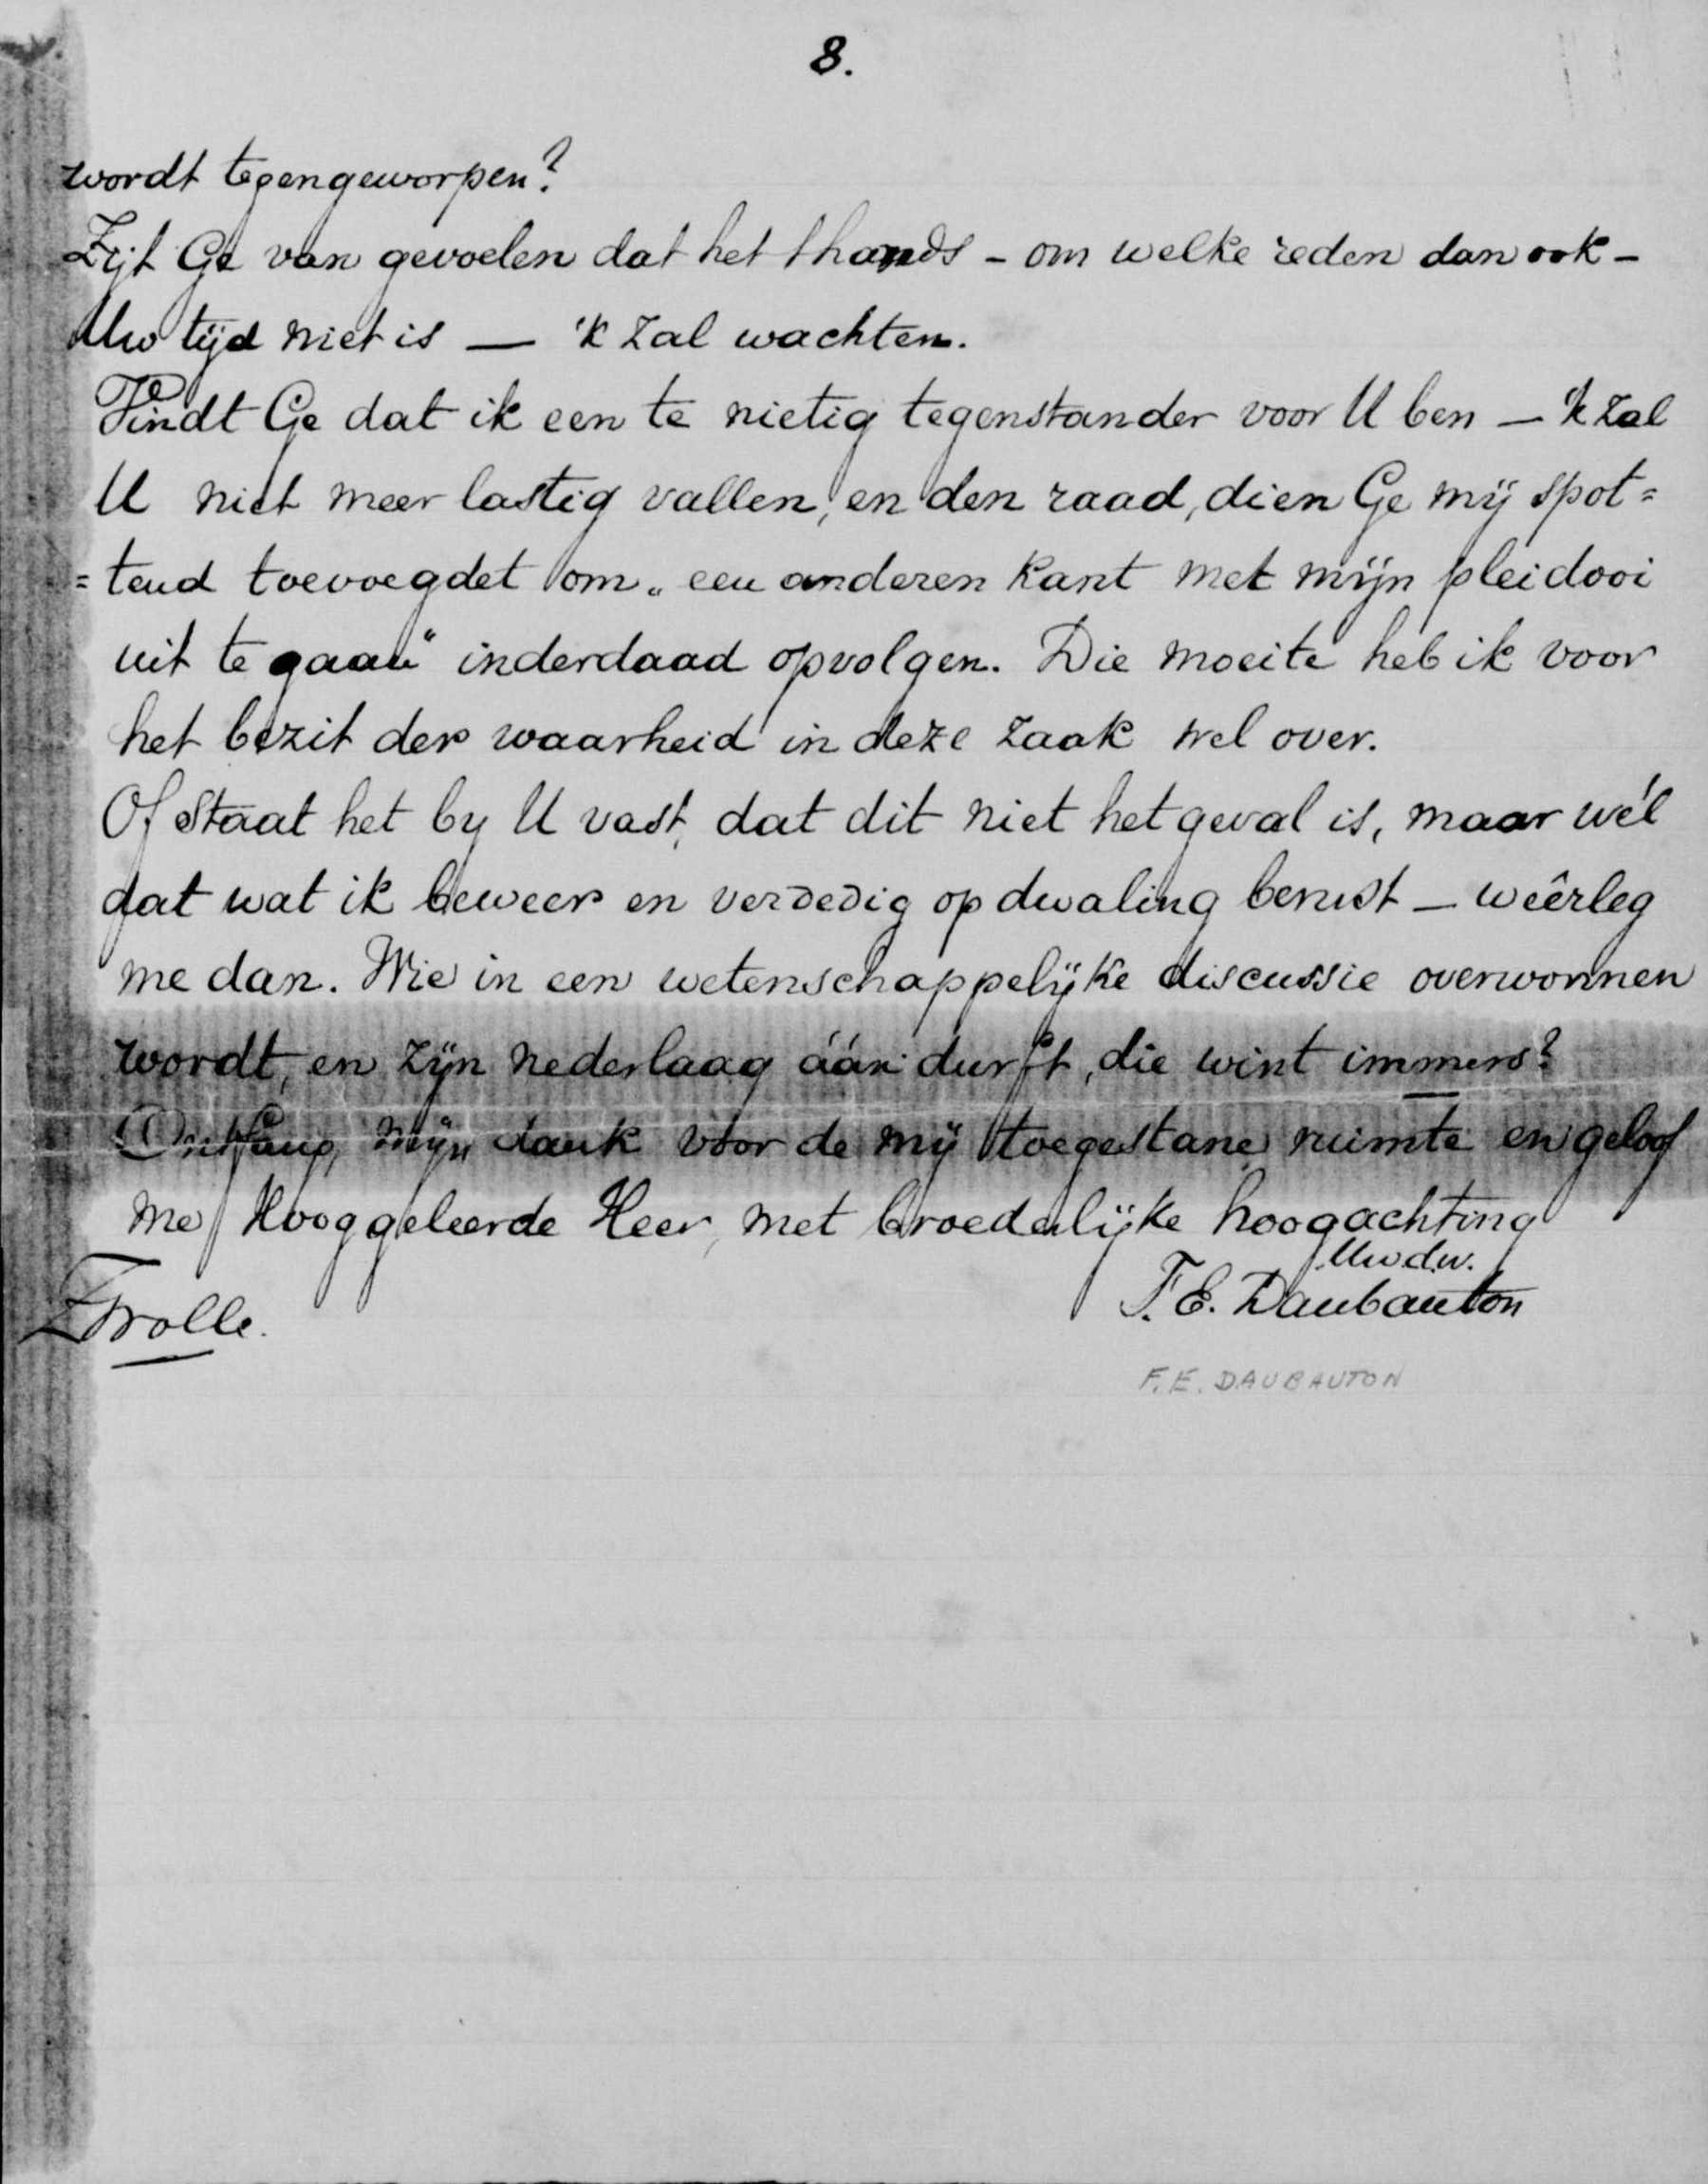 8.
wordt tegengeworpen?
Zijt Ge van gevoelen dat het thands - om welke reden dan ook -
Uw tijd niet is — 'k zal wachten.
Vindt Ge dat ik een te nietig tegenstander voor U ben — 'k zal
U niet meer lastig vallen, en den raad, dien Ge mij spot=
=tend toevoegdet om „een anderen kant met mijn pleidooi
uit te gaan" inderdaad opvolgen. Die moeite heb ik voor
het bezit der waarheid in deze zaak wel over.
Of staat het by U vast, dat dit niet het geval is, maar wél
dat wat ik beweer en verdedig op dwaling berust — weêrleg
me dan. Wie in een wetenschappelijke discussie overwonnen
wordt, en zijn nederlaag áán durft, die wint immers?
Ontfang mijn dank voor de mij toegestane ruimte en geloof
me, Hooggeleerde Heer, met broederlijke hoogachting
Uw d.w.
F. E. Daubanton
Zwolle.
F. E. DAUBAUTON